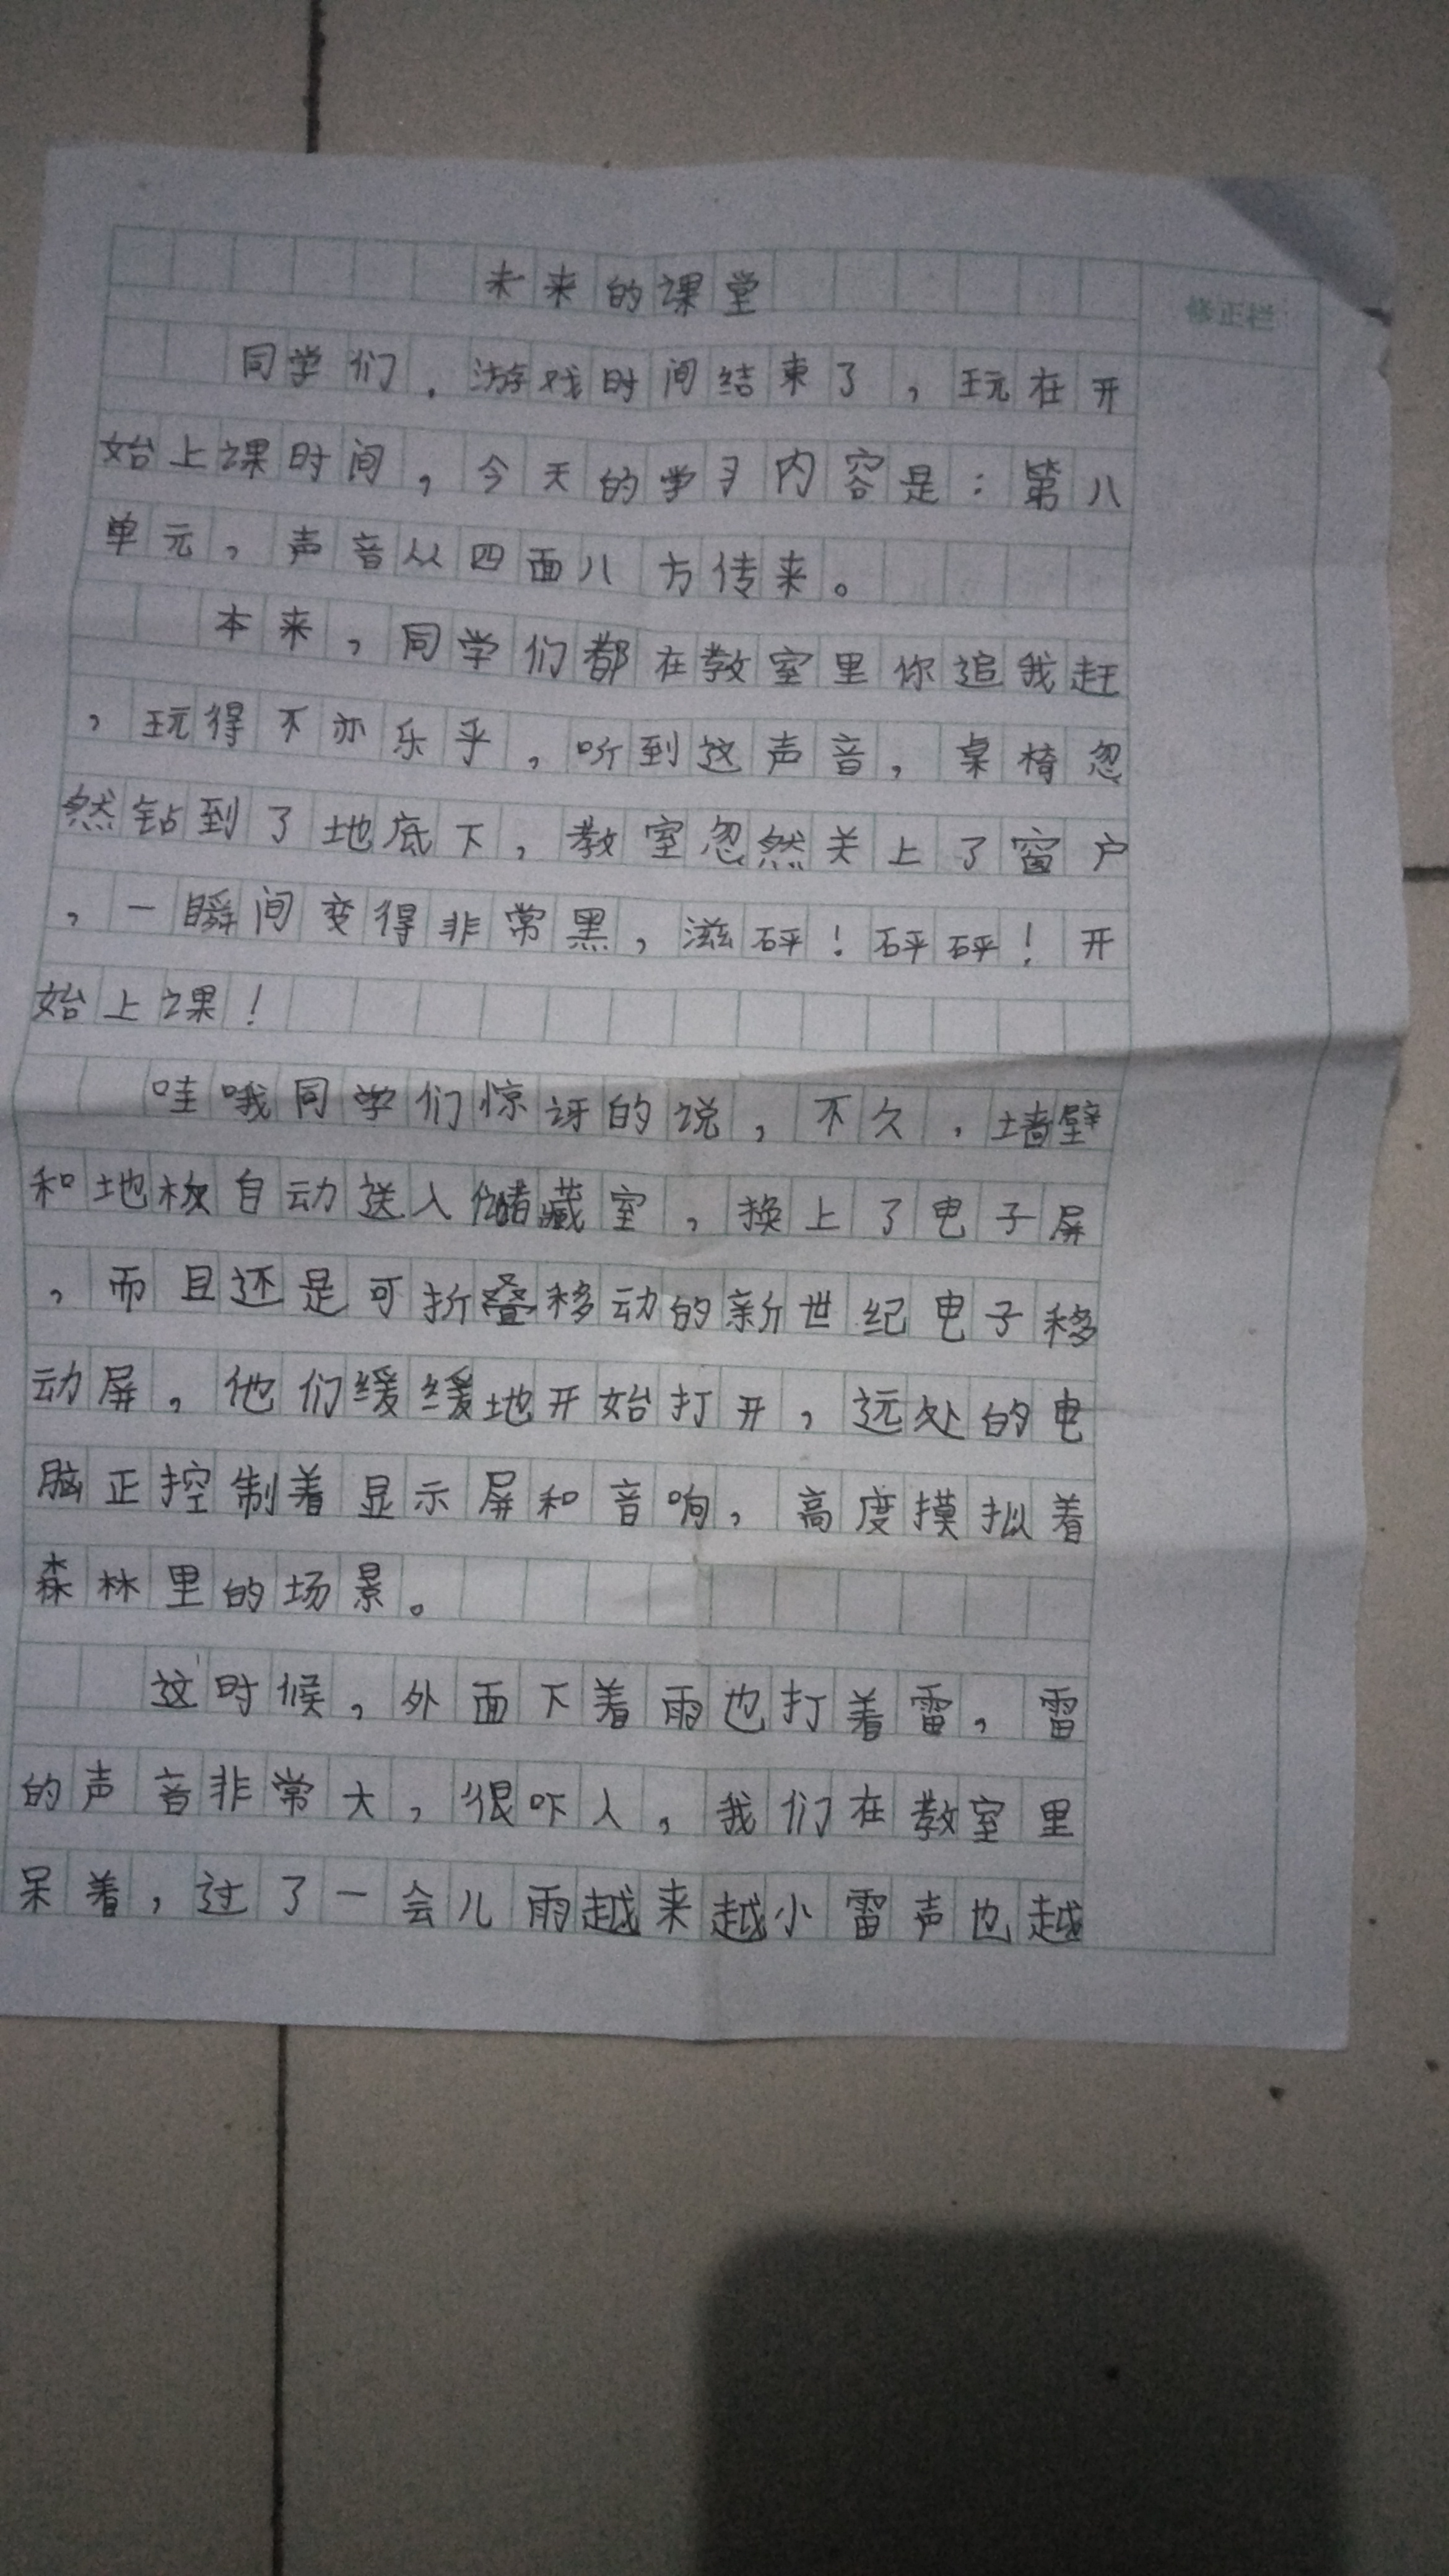 未来的课堂
同学们，游戏时间结束了，玩在开
始上课时间，今天的学习内容是：第八
单元，声音从四面八方传来。
本来，同学们都在教室里你追我赶
，玩得不亦乐乎，听到这声音，桌椅忽
然钻到了地底下，教室忽然关上了窗户
，一瞬间变得非常黑，滋砰！砰砰！开
始上课！
哇哦同学们惊讶的说，不久，墙壁
和地板自动送入储藏室，换上了电子屏
，而且还是可折叠移动的新世纪电子移
动屏，他们缓缓地开始打开，远处的电
脑正控制着显示屏和音响，高度摸拟着
森林里的场景。
这时候，外面下着雨也打着雷，雷
的声音非常大，很吓人，我们在教室里
呆着，过了一会儿雨越来越小雷声也越